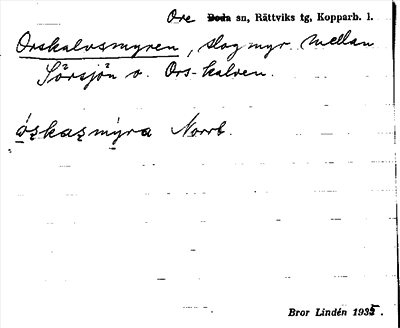 Ore Boda sn, Rättviks tg, Kopparb. l.
Orskalvsmyren, slogmyr mellan
Sörsjön o. Ors-kalven.
óskasmýra Norrb.
Bror Lindén 1935.